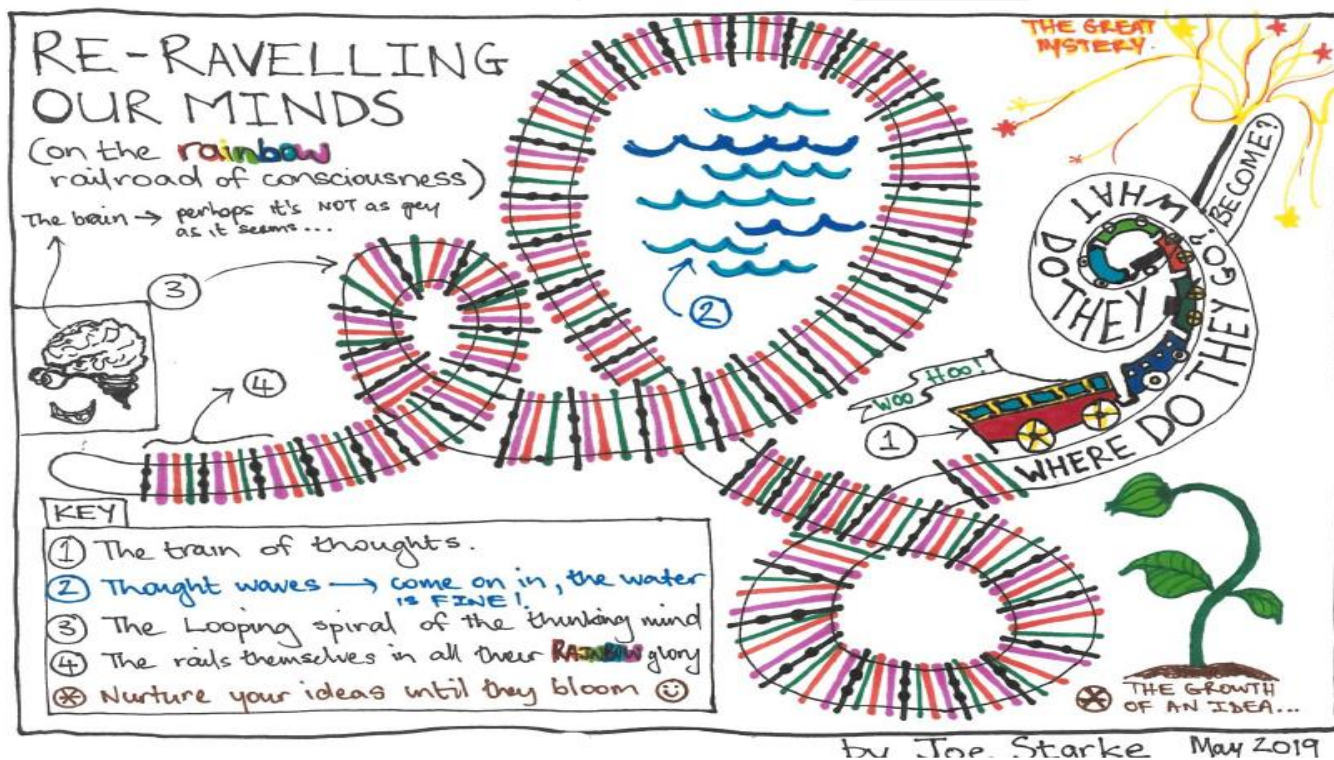 RE-RAVELLING
OUR MINDS
(on the rainbow
railroad of consciousness)
The brain → perhaps it's NOT as grey
as it seems...
THE GREAT
MYSTERY.
3
2
4
1
WOO HOO!
WHERE DO THEY GO?
WHAT
DO THEY
BECOME?
KEY
1 The train of thoughts.
2 Thought waves → come on in, the water
is FINE!
3 The Looping spiral of the thinking mind
4 The rails themselves in all their RAINBOW glory
* Nurture your ideas until they bloom ☺
* THE GROWTH
OF AN IDEA...
by Joe Starke May 2019